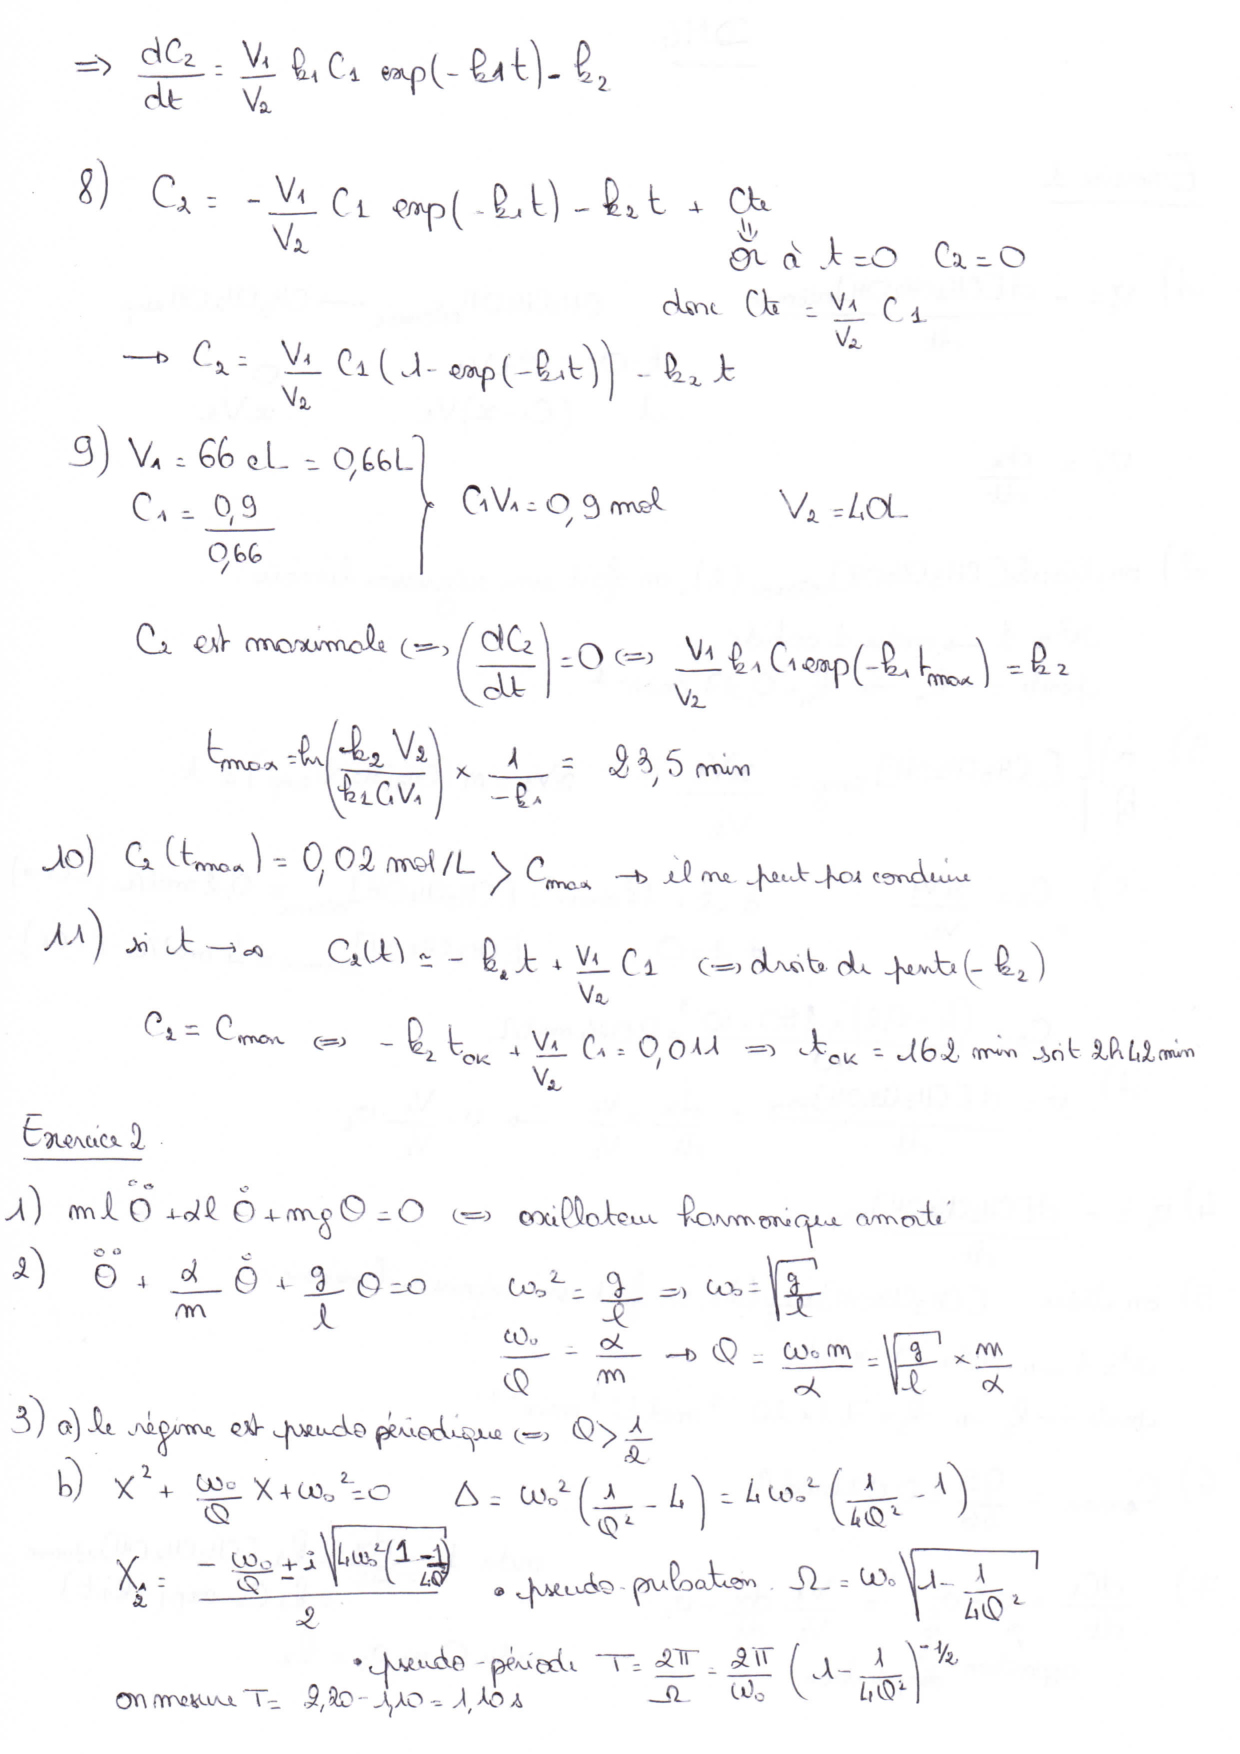 => dC₂/dt = V₁/V₂ k₁ C₁ exp(-k₁t) - k₂
8) C₂ = - V₁/V₂ C₁ exp(-k₁t) - k₂ t + Cte
⇓
or à t=0 C₂=0
donc Cte = V₁/V₂ C₁
→ C₂ = V₁/V₂ C₁ (1 - exp(-k₁t)) - k₂ t
9) V₁ = 66 cL = 0,66L
C₁ = 0,9/0,66 } C₁V₁ = 0,9 mol V₂ = 40L
C₂ est maximale <=> (dC₂/dt) = 0 <=> V₁/V₂ k₁ C₁ exp(-k₁ tmax) = k₂
tmax = ln(k₂ V₂ / k₁ C₁V₁) × 1/-k₁ = 23,5 min
10) C₂ (tmax) = 0,02 mol/L > Cmax → il ne peut pas conduire
11) si t → ∞ C₂(t) ≃ - k₂ t + V₁/V₂ C₁ <=> droite de pente (- k₂)
C₂ = Cmax <=> - k₂ tOK + V₁/V₂ C₁ = 0,011 => tOK = 162 min soit 2h42min
Exercice 2
1) ml θ̈ + αl θ̇ + mg θ = 0 <=> oscillateur harmonique amorti
2) θ̈ + α/m θ̇ + g/l θ = 0 ω₀² = g/l => ω₀ = √(g/l)
ω₀/Q = α/m → Q = ω₀ m/α = √(g/l) × m/α
3) a) le régime est pseudo périodique <=> Q > 1/2
b) X² + ω₀/Q X + ω₀² = 0 Δ = ω₀² (1/Q² - 4) = 4ω₀² (1/4Q² - 1)
X₁,₂ = (- ω₀/Q ± i √(4ω₀² (1 - 1/4Q²))) / 2 • pseudo-pulsation Ω = ω₀ √(1 - 1/4Q²)
• pseudo-période T = 2π/Ω = 2π/ω₀ (1 - 1/4Q²)^(-1/2)
on mesure T = 2,20 - 1,10 = 1,10 s